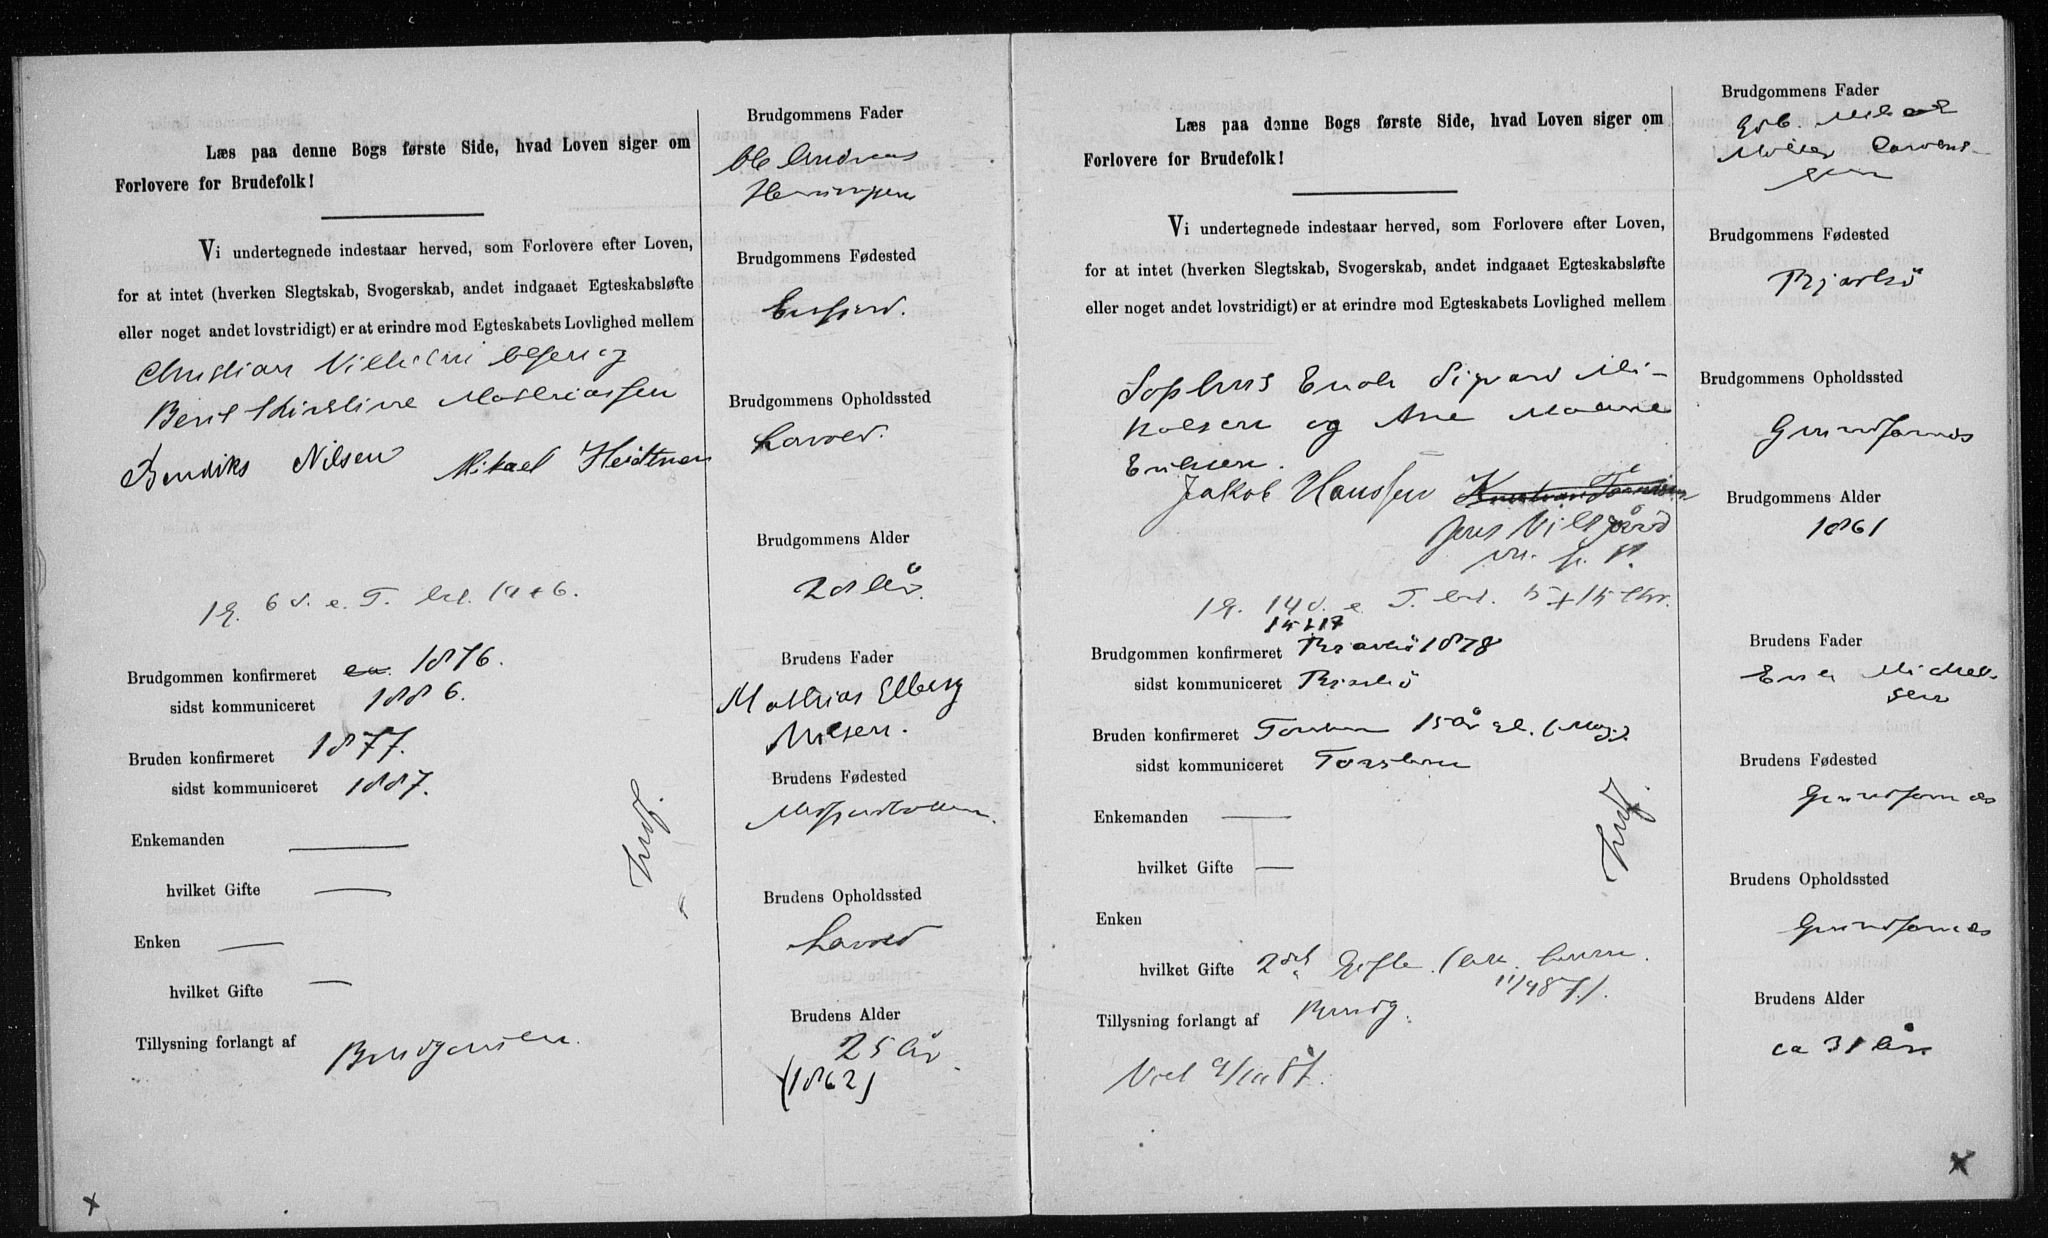 Læs paa denne Bogs første Side, hvad Loven siger om
Forlovere for Brudefolk!
Vi undertegnede indestaar herved, som Forlovere efter Loven,
for at intet (hverken Slegtskab, Svogerskab, andet indgaaet Egteskabsløfte
eller noget andet lovstridigt) er at erindre mod Egteskabets Lovlighed mellem
Christian Vilhelm Olsen og
Berit Kirstine Mathiassen
Bendiks Nilsen Mikael Heidtman
1 g. 6 s. e. T.
Brudgommen konfirmeret 1876.
sidst kommuniceret 1886.
Bruden konfirmeret 1877.
sidst kommuniceret 1887.
Enkemanden —
hvilket Gifte —
Enken —
hvilket Gifte —
Tillysning forlangt af Brudgommen.
Indf.
Brudgommens Fader
Ole Andreas
Henningsen
Brudgommens Fødested
Brudgommens Opholdssted
Lavold.
Brudgommens Alder
28 År
Brudens Fader
Mathias Elberg
Nilsen.
Brudens Fødested
Brudens Opholdssted
Lavold
Brudens Alder
25 år.
(1862)
x
Læs paa denne Bogs første Side, hvad Loven siger om
Forlovere for Brudefolk!
Vi undertegnede indestaar herved, som Forlovere efter Loven,
for at intet (hverken Slegtskab, Svogerskab, andet indgaaet Egteskabsløfte
eller noget andet lovstridigt) er at erindre mod Egteskabets Lovlighed mellem
Sophus Enok Sigvard Mi-
kalsen og Ane
Eriksen.
Jakob Hanssen
Jens
m. f. P.
1 g. 14 s. e. T.
15 + 17
Brudgommen konfirmeret Bjarkö 1878
sidst kommuniceret Bjarkö
Bruden konfirmeret Torsken 15 år gl.
sidst kommuniceret Torsken
Enkemanden —
hvilket Gifte —
Enken
hvilket Gifte 2det Gifte
Tillysning forlangt af Brudg.
Viet 9/10 87.
Indf.
Brudgommens Fader
Brudgommens Fødested
Bjarkö
Brudgommens Opholdssted
Grundfarnes
Brudgommens Alder
1861
Brudens Fader
Erik Mickel-
sen
Brudens Fødested
Grundfarnes
Brudens Opholdssted
Grundfarnes
Brudens Alder
ca 31 år
x